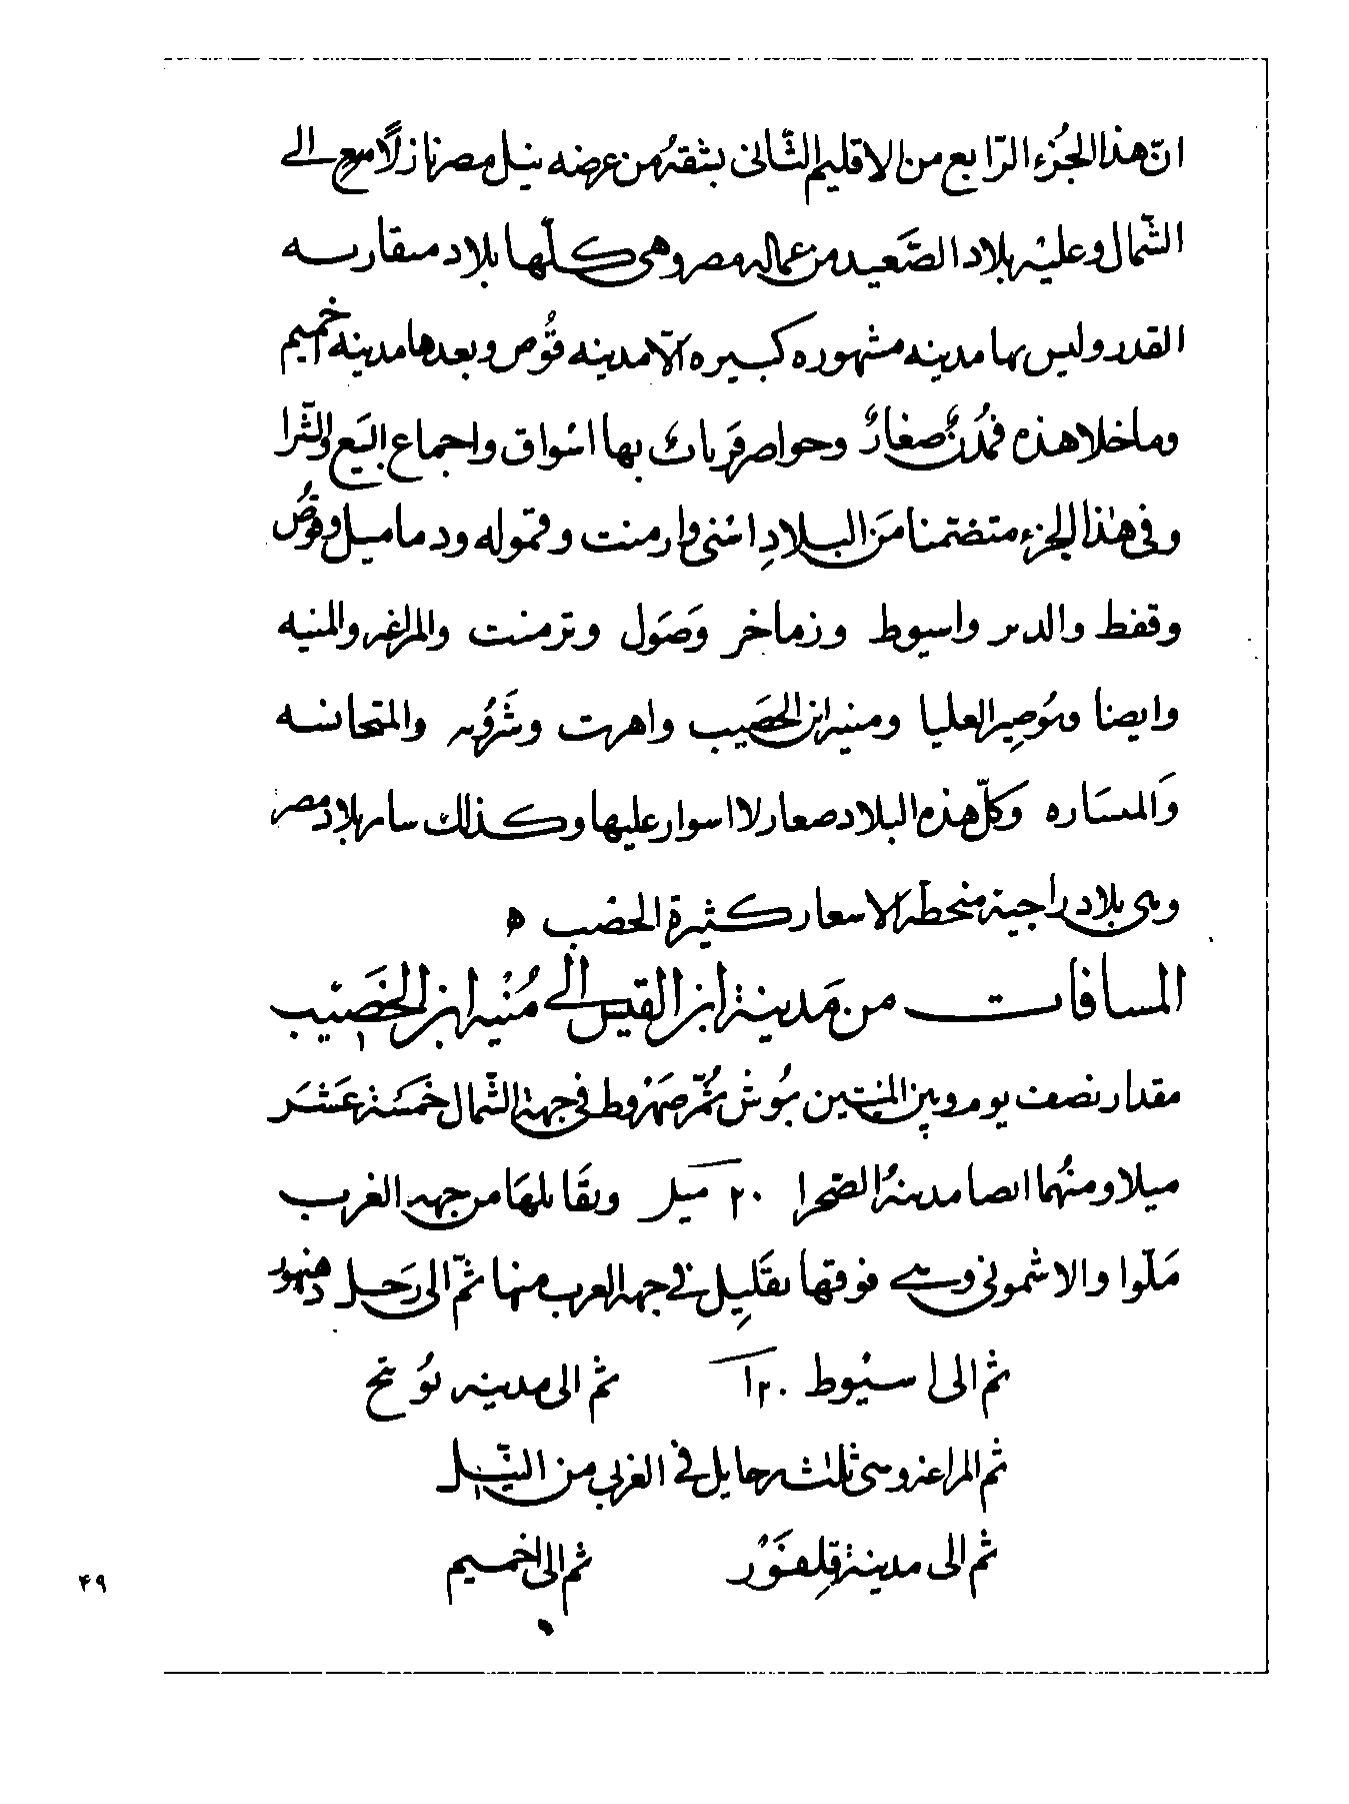 انّ هذا الجُزء الرّابع من الاقليم الثّانى يشقهُ من عرضه نيل مصر نازلًا مع الى
الشّمال وعليْه بلاد الصَّعيد من عماله مصر وهى كلّها بلاد متقاربه
القدر وليس بها مدينه مشهوره كبيره الّا مدينه قُوص وبعدها مدينه اخميم
وما خلا هذه فمُدنٌ صغارٌ وحواصر قَريات بها اسْواق واجماع البَيع والشّرا
وفى هٰذا الجزء متضمنا مَن البلادِ اسْنى وارمنت وقموله ودماميل وقُوص
وقفط والدير واسيوط وزماخر وَصَول وترمنت والمراغه والمنيه
وايضا بُوصِير العليا ومنيه ابن الخصَيب واهرت وشَرُونه والمتحانسه
وَالمسَاره وكلّ هذه البلاد صغار لا اسوار عليها وكذالك ساير بلاد مصر
وهى بلاد راجية منحطه الاسعار كثيرة الخصب ه
المسافات من مَدينة ابن القيس الى مُنْيه ابن الخصَيْب
مقدار نصف يوم وبين المنيتين بُوش ثُمّ صَهْروط فى جهة الشّمال خَمسَة عَشَر
ميلا ومنهُما ايضا مدينهُ الصّحرا ٢٠ ميل ويقَابلهَا من جهه الغرب
مَلّوا والاشمونى وهى فوقها بقَلِيل فى جهه الغرب منها ثمّ الى رَحل دمنهور
ثم الى اسيْوط ١٢٠ ثم الى مدينه بُو تيح
ثم المراغه وهى ثلٰث رحايل فى الغربى من النّيل
ثم الى مدينة قِلفنَوْر ثم الى اخميم
۴۹